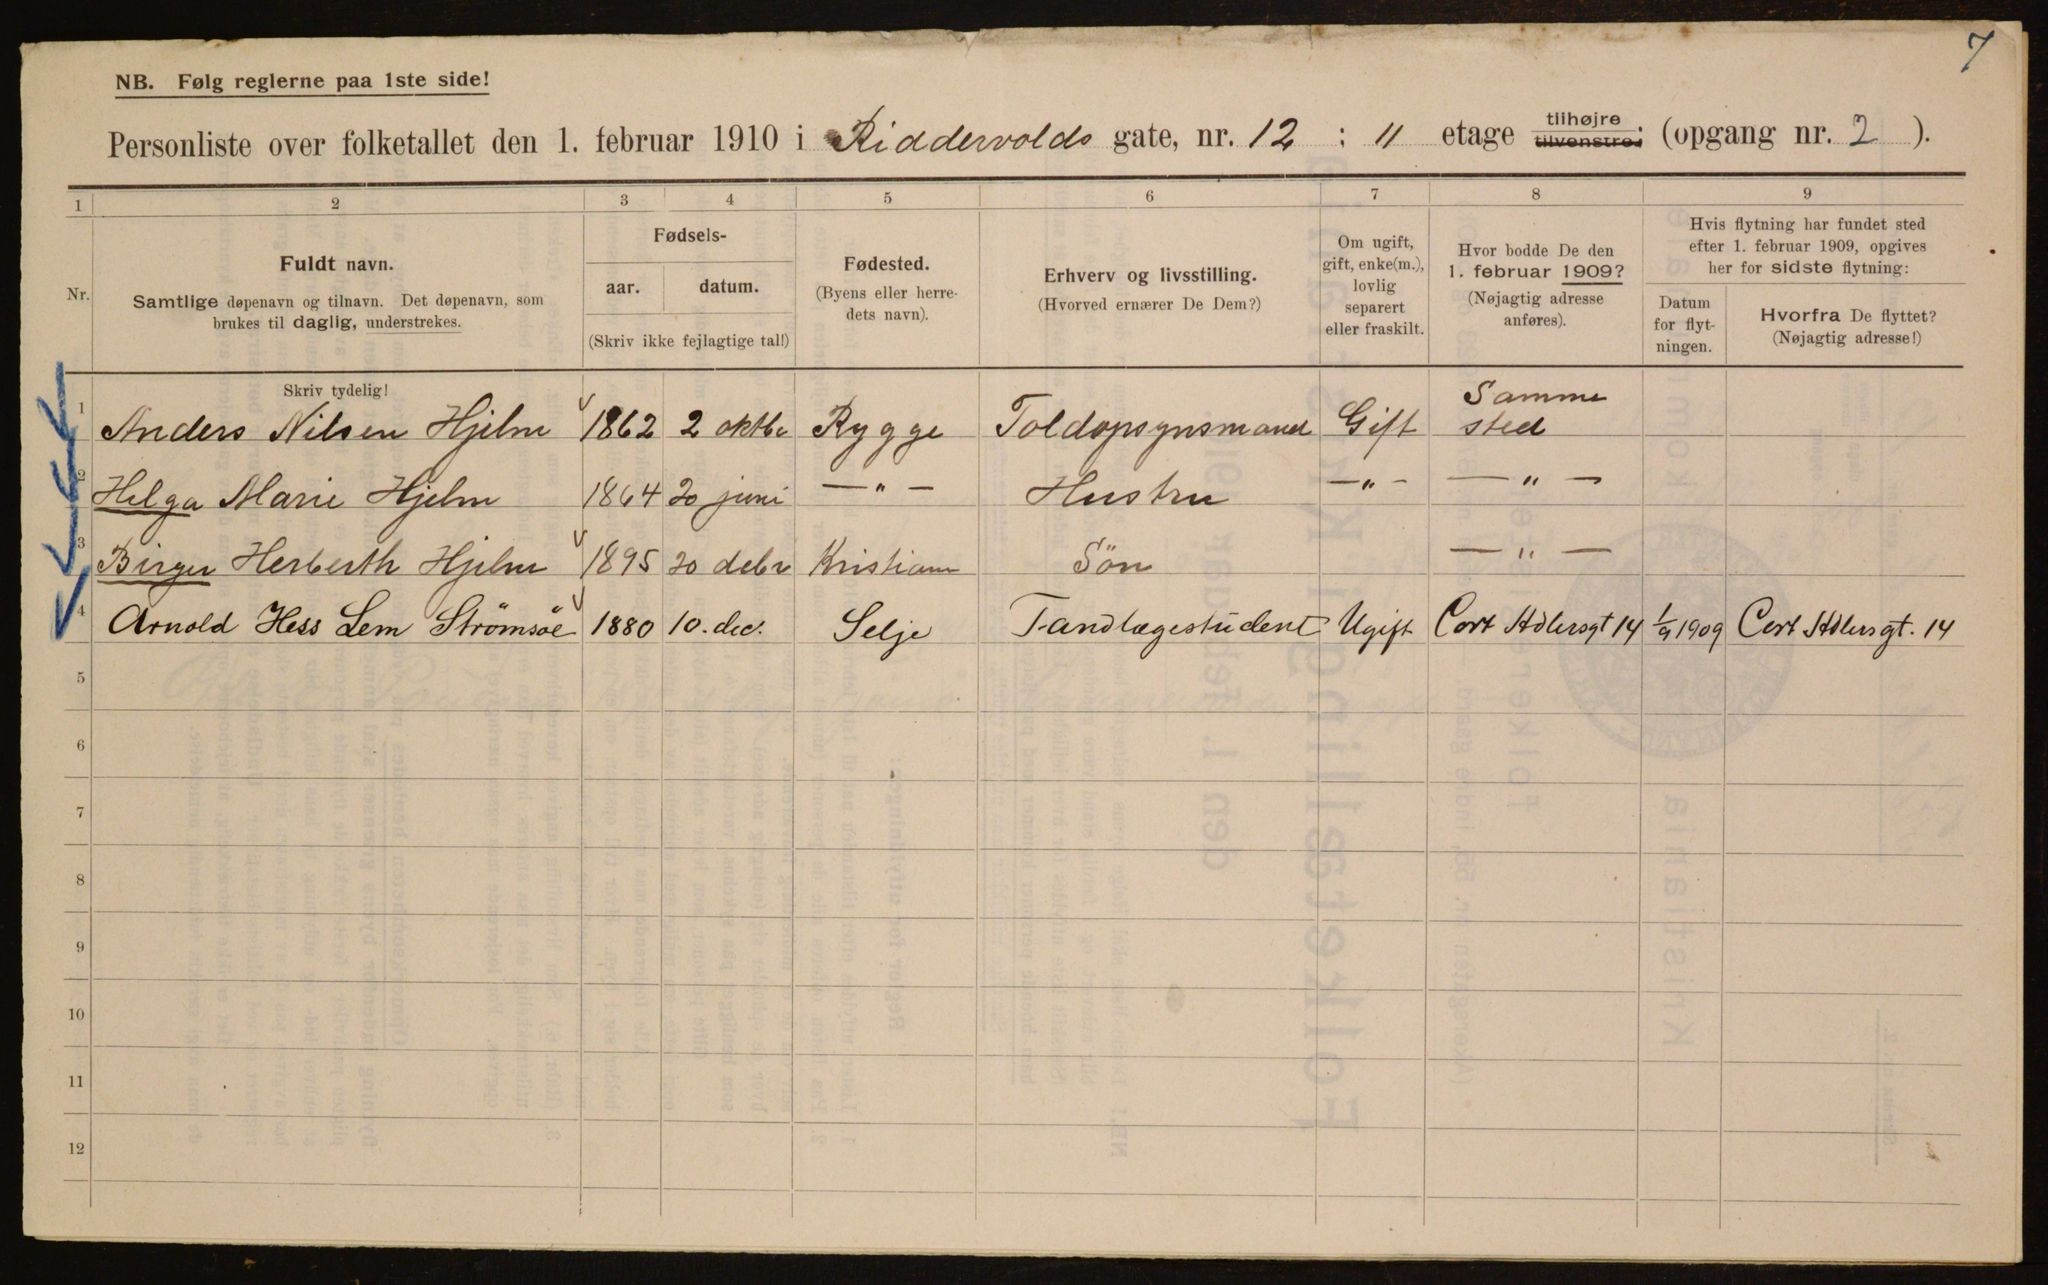 7
NB. Følg reglerne paa 1ste side!
Personliste over folketallet den 1. februar 1910 i Riddervolds gate, nr. 12 : 11 etage tilhøjre tilvenstre; (opgang nr. 2 ).
1 2 3 4 5 6 7 8 9
Nr.
Fuldt navn.
Samtlige døpenavn og tilnavn. Det døpenavn, som
brukes til daglig, understrekes.
Fødsels-
aar. datum.
(Skriv ikke fejlagtige tal!)
Fødested.
(Byens eller herre-
dets navn).
Erhverv og livsstilling.
(Hvorved ernærer De Dem?)
Om ugift,
gift, enke(m.),
lovlig
separert
eller fraskilt.
Hvor bodde De den
1. februar 1909?
(Nøjagtig adresse
anføres).
Hvis flytning har fundet sted
efter 1. februar 1909, opgives
her for sidste flytning:
Datum
for flyt-
ningen.
Hvorfra De flyttet?
(Nøjagtig adresse!)
Skriv tydelig!
1 Anders Nilsen Hjelm 1862 2 oktbr Rygge Toldopsynsmand Gift Samme sted
2 Helga Marie Hjelm 1864 20 juni — " — Hustru — " — — " —
3 Birger Herberth Hjelm 1895 20 debr Kristiania Sön — " —
4 Arnold Hess Lem Strömsöe 1880 10. dec. Selje Tandlægestudent Ugift Cort Adlersgt 14 1/9 1909 Cort Adlersgt. 14
5
6
7
8
9
10
11
12